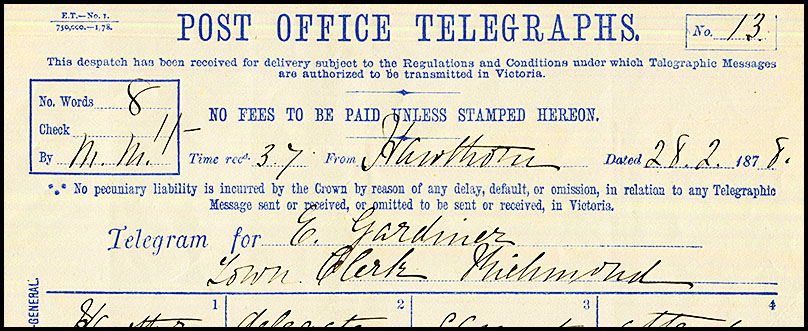 E.T.—No. 1.
750,000.—1,78.
POST OFFICE TELEGRAPHS.
No. 13
This despatch has been received for delivery subject to the Regulations and Conditions under which Telegraphic Messages
are authorized to be transmitted in Victoria.
No. Words 8
Check 11-
By M.M.
NO FEES TO BE PAID UNLESS STAMPED HEREON.
Time recd. 3.7 From Hawthorn Dated 28.2.1878.
No pecuniary liability is incurred by the Crown by reason of any delay, default, or omission, in relation to any Telegraphic
Message sent or received, or omitted to be sent or received, in Victoria.
Telegram for E. Gardiner
Town Clerk Richmond
-GENERAL.
1 2 3 4
delegate